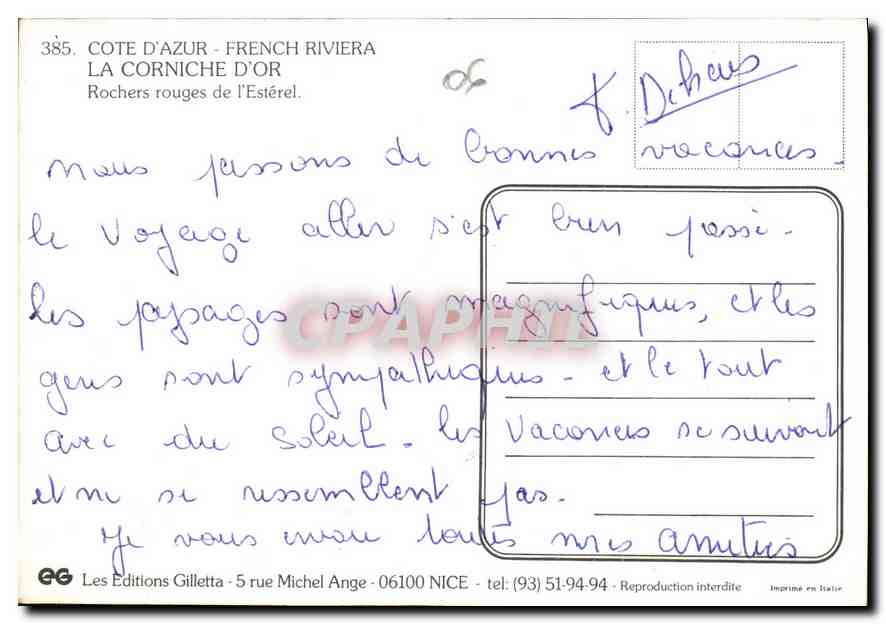 385. COTE D'AZUR - FRENCH RIVIERA
LA CORNICHE D'OR
Rochers rouges de l'Estérel.
06
nous passons de bonnes vacances.
le voyage aller s'est bien passé.
les paysages sont magnifiques, et les
gens sont sympathiques. et le tout
avec du soleil. les vacances se suivent
et ne se ressemblent pas.
Je vous envoie toutes mes amitiés
CPAPHIL
EG Les Editions Gilletta - 5 rue Michel Ange - 06100 NICE - tel: (93) 51-94-94 - Reproduction interdite
Imprimé en Italie